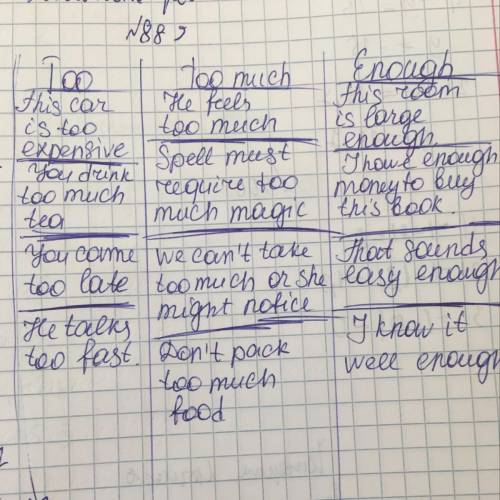 №88
Too
this car
is too
expensive
You drink
too much
tea
You came
too late
He talks
too fast.
Too much
He feels
too much
Spell must
require too
much magic
we can't take
too much or she
might notice
Don't pack
too much
food
Enough
this room
is large
enough.
I have enough
money to buy
this book.
That sounds
easy enough
I know it
well enough